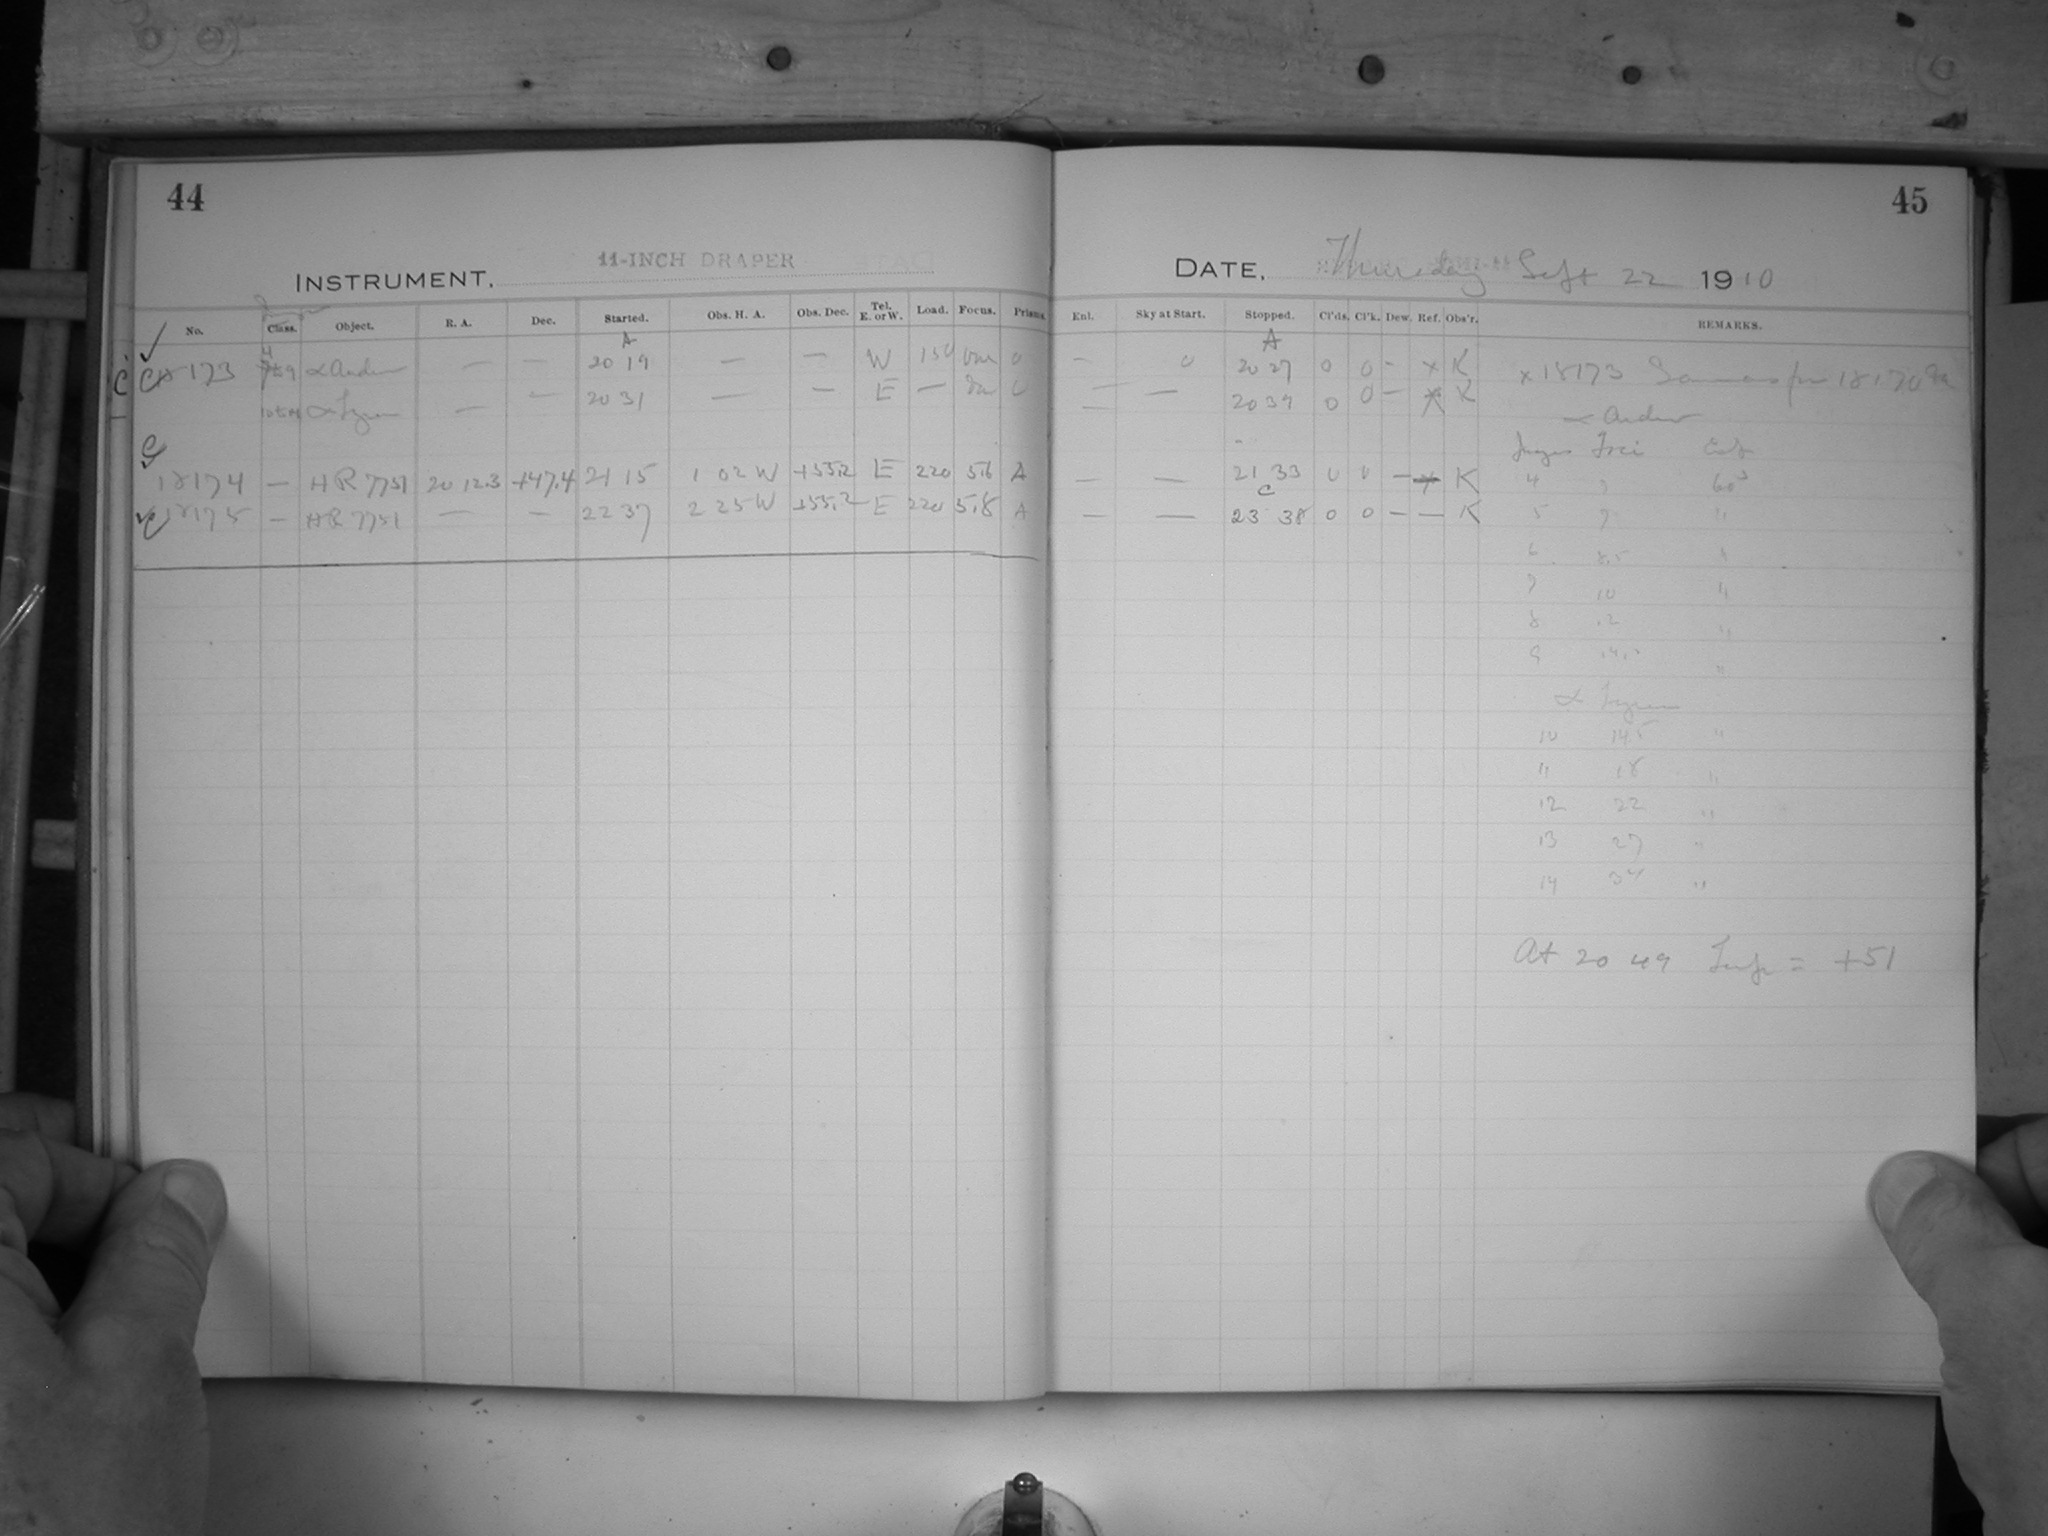 44
INSTRUMENT, 11-INCH DRAPER
No. Class. Object. R. A. Dec. Started. Obs. H. A. Obs. Dec. Tel. E. or W. Load. Focus. Prisms.
A
173 20 19 — — W 150 0
— — 20 31 — — E —
C
18174 — HR 7751 20 12.3 +47.4 21 15 1 02 W +55.2 E 220 5.6 A
C 18175 — HR 7751 — — 22 37 2 25 W +55.2 E 220 5.8 A
45
DATE, Thursday Sept 22 1910
Enl. Sky at Start. Stopped. Cl'ds. Cl'k. Dew. Ref. Obs'r. REMARKS.
A
— 0 20 27 0 0 — x K x 18173 Same as for 18170
— — 20 39 0 0 — x K
— — 21 33 0 0 — K
C
— — 23 38 0 0 — — K
4 9 60
5 9 "
6 8.5 "
7 10 "
8 12 "
9 "
10 14.5 "
11 18 "
12 22 "
13 27 "
14 "
At 20 49 Temp = +51